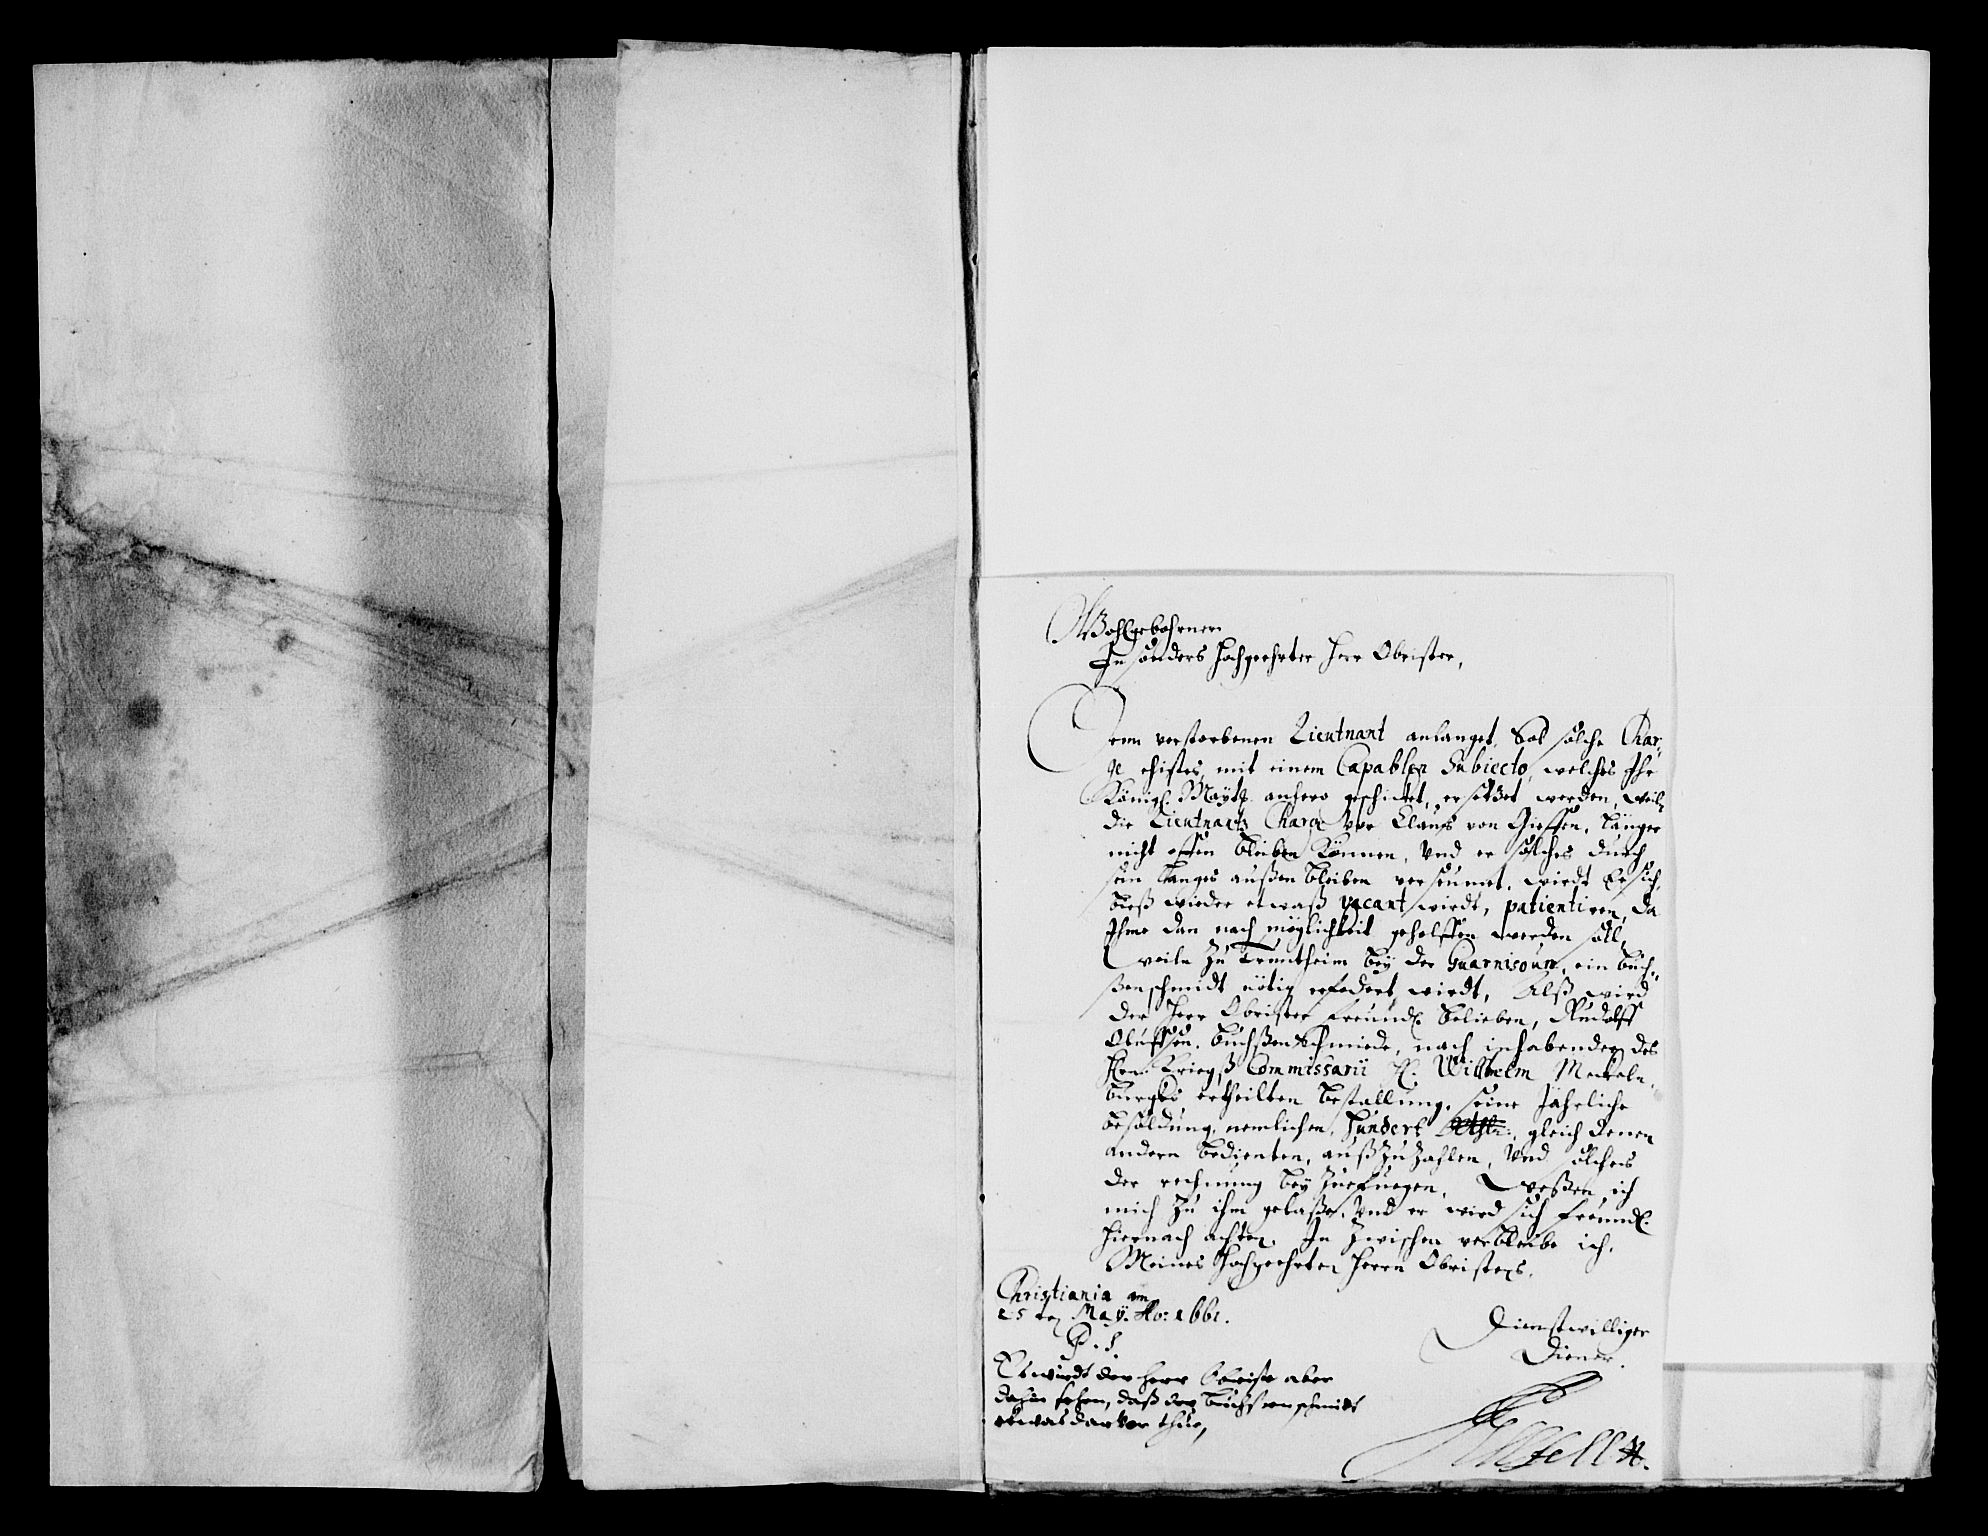 Wohlgebohrner
Insonders hochgeehrter Herr Obrister,
Denn verstorbenen Lieutnant anlanget, Sol solche Char-
ge ehistes, mit einem Capablen Subiecto, welches Ihr
Königl. Maytt. anhero geschicket, ersetzet werden, weiln
die Lieutnants Charge vor Clauß von Giessen, länger
nicht offen bleiben können, Und er solches durch
sein langes außen bleiben verseumet, wirdt Er sich,
biß wieder etwaß vacant wirdt, patientiren, da
Ihme dan nach möglichkeit geholffen werden soll,
Weiln zu Truntheim bey der Guarnisoun, ein buch-
ßenschmidt nötig erfodert wirdt, Alß wird
der Herr Obrister freundl. belieben, Rudolff
Oluffsen, buchßenschmiede, nach inhabender des
Hrn. Kriegß Commissarii H. Wilhelm Meckeln-
burgks ertheilten bestallung, seine Jährliche
besoldung, nemlichen, hundert Rthlr., gleich denen
andern bedienten, außzuzahlen, Und solches
der rechnung bey zuefuegen. Weßen ich
mich zu ihm gelaße, Und er wird sich freundl.
hiernach achten. In zwischen verbleibe ich,
Meines Hochgeehrten Herrn Obristers,
Christiania am
25 ten May. Ao: 1661.
Dienstwilliger
Diener.
P. S.
Es wirdt der herr Obriste aber
dahin sehen, daß der buchßenschmidt
etwas darvor thue,